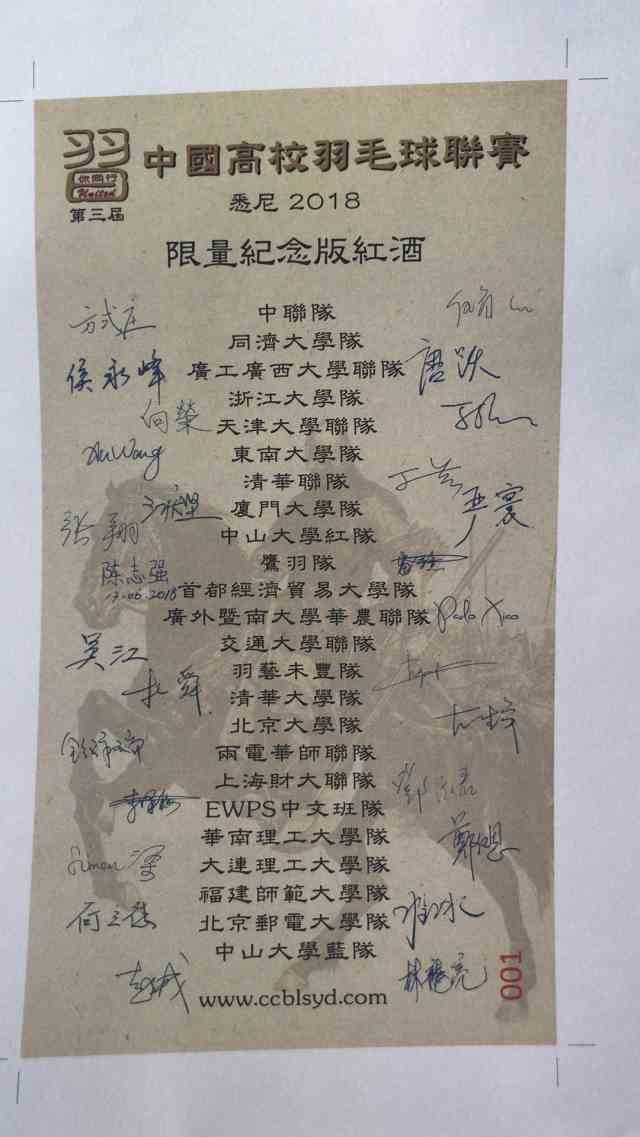 羽 中國高校羽毛球聯賽
你同行
United
第三届
悉尼 2018
限量紀念版紅酒
中聯隊
方式庄
同濟大學隊
侯永峰 廣工廣西大學聯隊 唐跃
浙江大學隊
向榮 天津大學聯隊
東南大學隊
清華聯隊
廈門大學隊
张翔
中山大學紅隊
鷹羽隊
陈志强
首都經濟貿易大學隊
17-06-2018
廣外暨南大學華農聯隊
交通大學聯隊
吴江
羽藝未豐隊
清華大學隊
北京大學隊
兩電華師聯隊
上海財大聯隊
EWPS中文班隊
華南理工大學隊
大連理工大學隊
福建師範大學隊
北京郵電大學隊
中山大學藍隊
www.ccblsyd.com
001